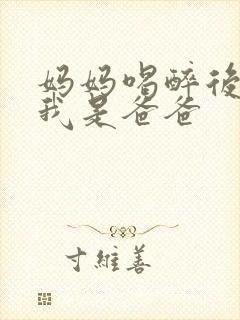 妈妈喝醉後
我是爸爸
寸維善